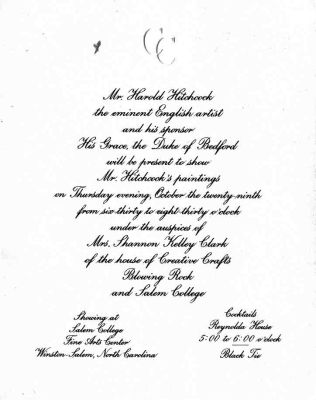 CC
Mr. Harold Hitchcock
the eminent English artist
and his sponsor
His Grace, the Duke of Bedford
will be present to show
Mr. Hitchcock's paintings
on Thursday evening, October the twenty-ninth
from six-thirty to eight-thirty o'clock
under the auspices of
Mrs. Shannon Kelley Clark
of the house of Creative Crafts
Blowing Rock
and Salem College
Showing at
Salem College
Fine Arts Center
Winston-Salem, North Carolina
Cocktails
Reynolda House
5:00 to 6:00 o'clock
Black Tie